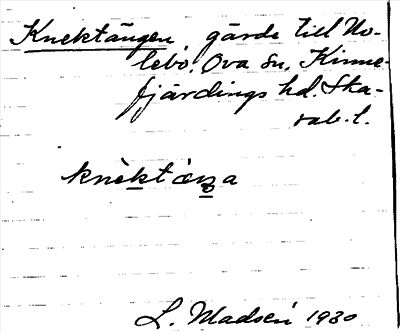 Knektängen, gärde till No-
lebo. Ova sn, Kinne-
fjärdings hd. Ska-
rab. l.
knèktæŋa
L. Madsén 1930